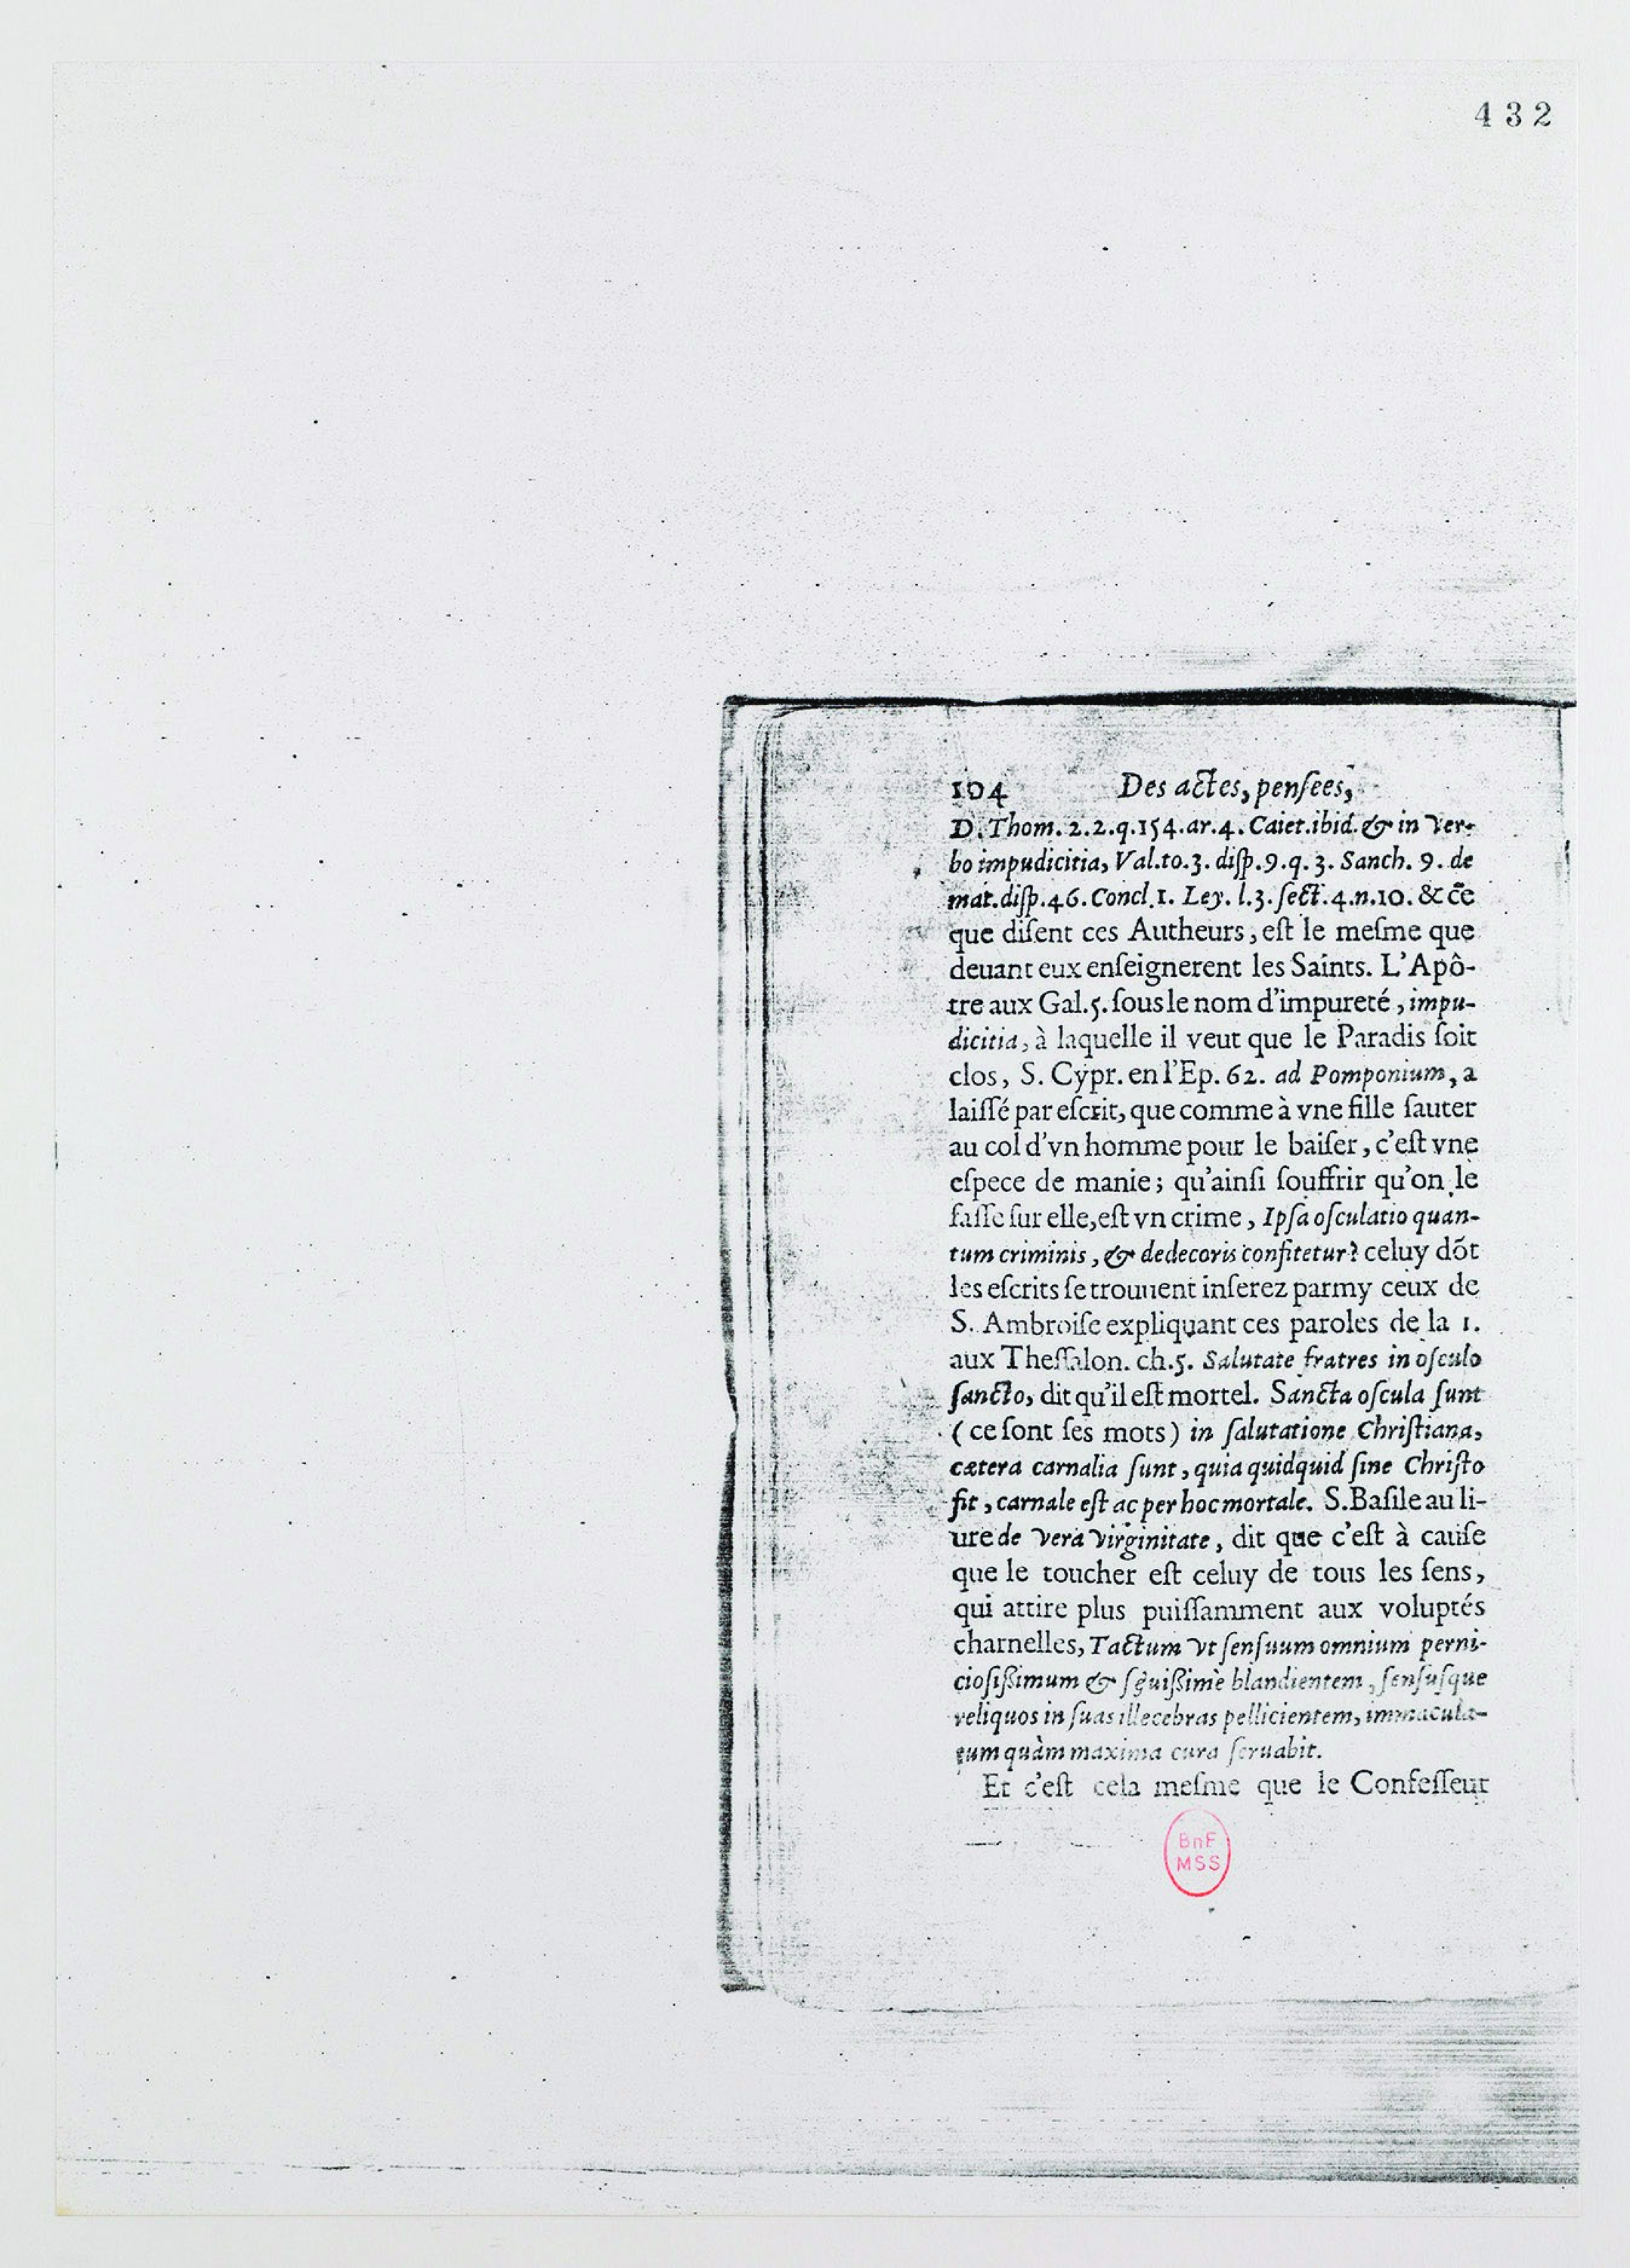 432
104 Des actes, pensees,
D. Thom. 2.2.q.154.ar.4. Caiet.ibid. & in ver-
bo impudicitia, Val.to.3. disp.9.q.3. Sanch. 9. de
mat.disp.46. Concl.1. Ley. l.3. sect.4.n.10. & cē
que diſent ces Autheurs, eſt le meſme que
deuant eux enſeignerent les Saints. L'Apô-
tre aux Gal.5. ſous le nom d'impureté, impu-
dicitia, à laquelle il veut que le Paradis ſoit
clos, S. Cypr. en l'Ep. 62. ad Pomponium, a
laiſſé par eſcrit, que comme à vne fille ſauter
au col d'vn homme pour le baiſer, c'eſt vne
eſpece de manie; qu'ainſi ſouffrir qu'on le
faſſe ſur elle, eſt vn crime, Ipſa oſculatio quan-
tum criminis, & dedecoris confitetur? celuy dõt
les eſcrits ſe trouuent inſerez parmy ceux de
S. Ambroiſe expliquant ces paroles de la 1.
aux Theſſalon. ch.5. Salutate fratres in oſculo
ſancto, dit qu'il eſt mortel. Sancta oſcula ſunt
( ce ſont ſes mots ) in ſalutatione Chriſtiana,
cætera carnalia ſunt, quia quidquid ſine Chriſto
fit, carnale eſt ac per hoc mortale. S. Baſile au li-
ure de vera virginitate, dit que c'eſt à cauſe
que le toucher eſt celuy de tous les ſens,
qui attire plus puiſſamment aux voluptés
charnelles, Tactum vt ſenſuum omnium perni-
cioſiſſimum & blandientem, ſenſuſque
reliquos in ſuas illecebras pellicientem, immacula-
tum quàm maxima cura ſeruabit.
Et c'eſt cela meſme que le Confeſſeur
BnF
MSS